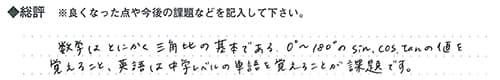 ◆総評 ※良くなった点や今後の課題などを記入して下さい。
数学はとにかく三角比の基本である 0°~180°の sin, cos, tan の値を
覚えること、英語は中学レベルの単語を覚えることが課題です。